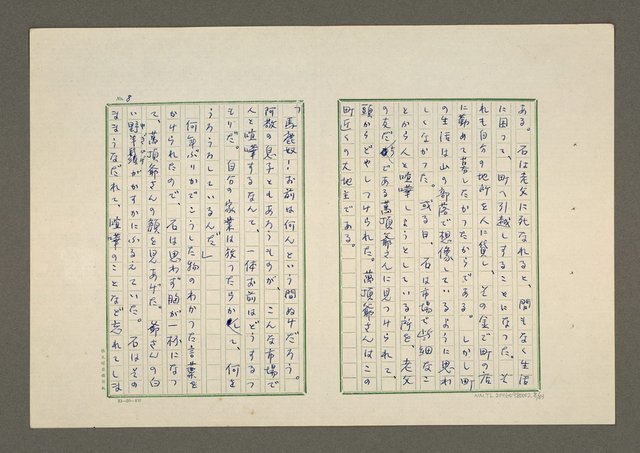 ある。石は老父に死なれると、間もなく生活
に困って、町へ引越しすることになった。そ
れも自分の地所を人に貸し、その金で町の店
に勤めて暮したかったからである。しかし町
の生活は山の部落で想像しているように思わ
しくなかった。或る日、石は市場で些細なこ
とから人と喧嘩しようとしている所を、老父
の友だちである萬頂爺さんに見つけられて、
頭からどやしつけられた。萬頂爺さんはこの
町近くの大地主である。
No. 8
「馬鹿奴！お前は何んという間ぬけだろう。
阿敏の息子ともあろうものが、こんな市場で
人と喧嘩するなんて、一体お前はどうするつ
もりだ。自分の家業は放ったらかして、何を
うろうろしているんだ」
何年ぶりかでこうした物のわかった言葉を
かけられたので、石は思わず胸が一杯になっ
て、萬頂爺さんの顔を見あげた。爺さんの白
い野羊鬚がかすかにふるえていた。石はその
ままうなだれて、喧嘩のことなど忘れてしま